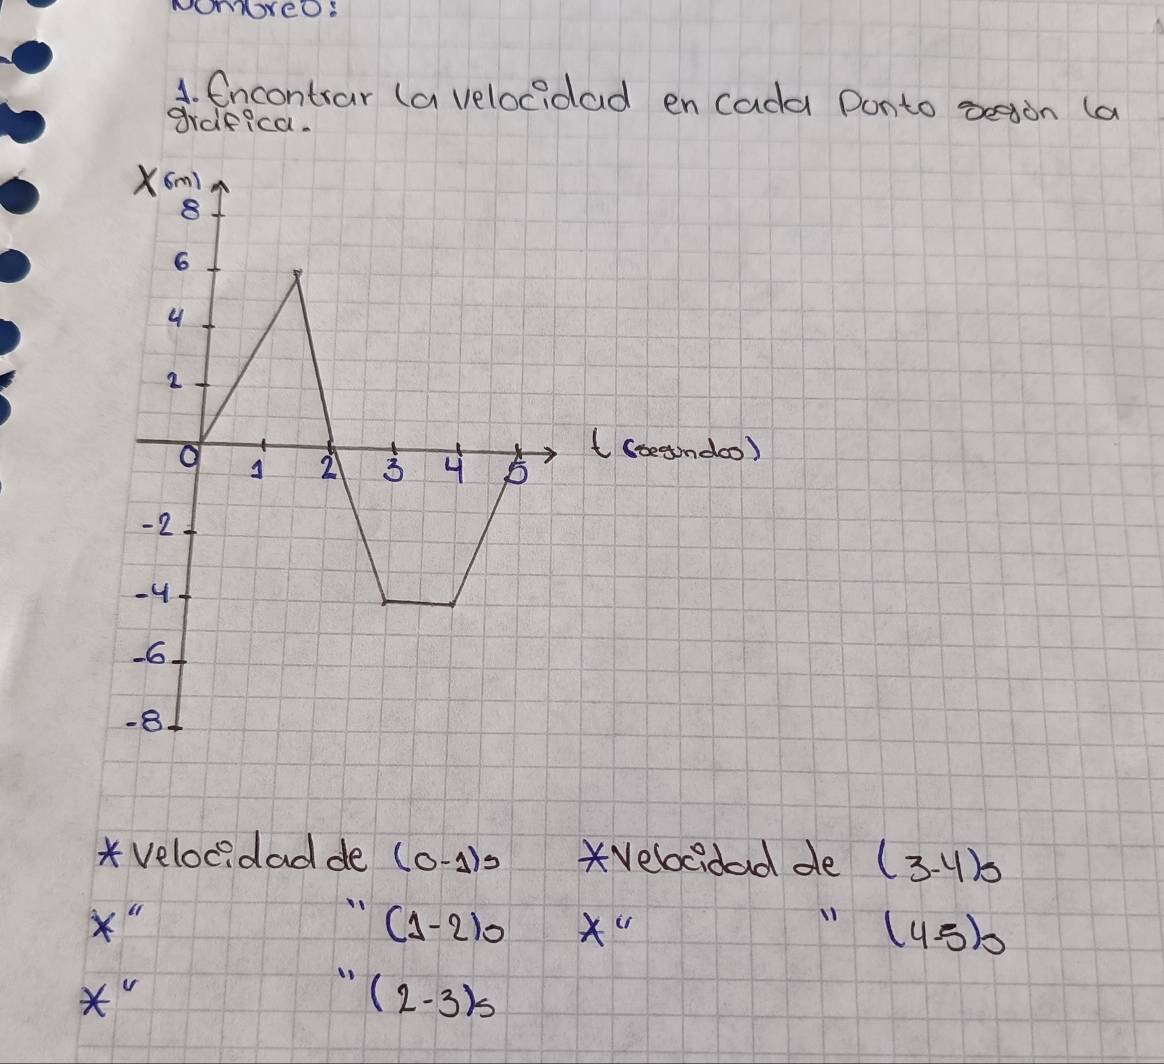 Nombres:
1. Encontrar la velocidad en cada Punto según la
gráfica.
X(m)
8
6
4
2
0 1 2 3 4 5 t (segundos)
-2
-4
-6
-8
* velocidad de (0-1)s * velocidad de (3-4)s
* " " (1-2)s * " " (4-5)s
* " " (2-3)s